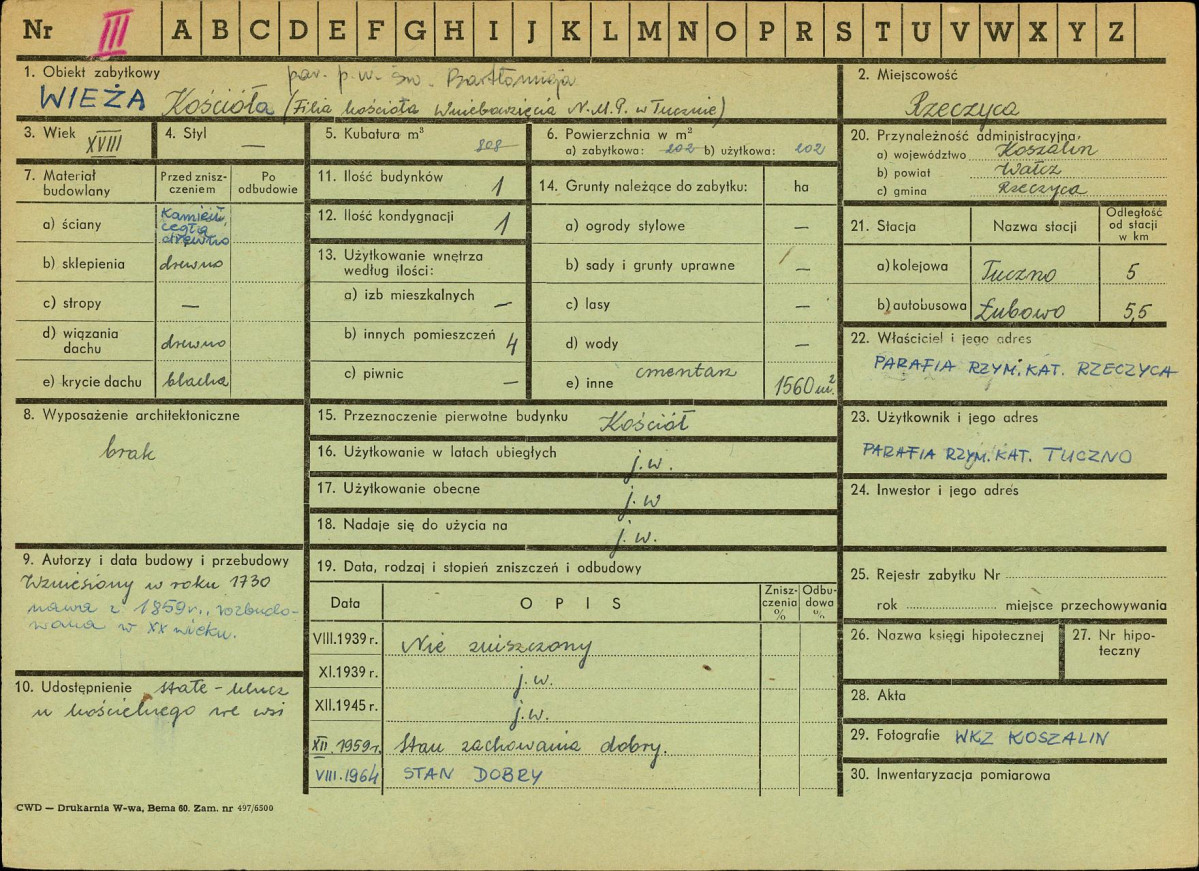 Nr III A B C D E F G H I J K L M N O P R S T U V W X Y Z
1. Obiekt zabytkowy
par. p.w. św. Bartłomieja
WIEŻA Kościoła (Filia kościoła Wniebowzięcia N.M.P. w Tucznie)
2. Miejscowość
Rzeczyca
3. Wiek XVIII
4. Styl —
5. Kubatura m³ 808
6. Powierzchnia w m²
a) zabytkowa: 202 b) użytkowa: 202
20. Przynależność administracyjna,
a) województwo Koszalin
b) powiat Wałcz
c) gmina Rzeczyca
7. Materiał budowlany
Przed zniszczeniem
Po odbudowie
a) ściany kamień, cegła drewno
b) sklepienia drewno
c) stropy —
d) wiązania dachu drewno
e) krycie dachu blacha
11. Ilość budynków 1
12. Ilość kondygnacji 1
13. Użytkowanie wnętrza
według ilości:
a) izb mieszkalnych —
b) innych pomieszczeń 4
c) piwnic —
14. Grunty należące do zabytku: ha
a) ogrody stylowe —
b) sady i grunty uprawne —
c) lasy —
d) wody —
e) inne cmentarz 1560 m².
21. Stacja Nazwa stacji Odległość od stacji w km
a) kolejowa Tuczno 5
b) autobusowa Łubowo 5,5
22. Właściciel i jego adres
PARAFIA RZYM. KAT. RZECZYCA
8. Wyposażenie architektoniczne
brak
15. Przeznaczenie pierwotne budynku Kościół
16. Użytkowanie w latach ubiegłych j.w.
17. Użytkowanie obecne j.w
18. Nadaje się do użycia na j.w.
23. Użytkownik i jego adres
PARAFIA RZYM. KAT. TUCZNO
24. Inwestor i jego adres
9. Autorzy i data budowy i przebudowy
Wzniesiony w roku 1730
nawa z 1859 r., rozbudo-
wana w XX wieku.
10. Udostępnienie stałe – klucz
u kościelnego we wsi
19. Data, rodzaj i stopień zniszczeń i odbudowy
Data OPIS Zniszczenia % Odbudowa %
VIII.1939 r. Nie zniszczony
XI.1939 r. j.w.
XII.1945 r. j.w.
XII 1959 r. Stan zachowania dobry.
VIII.1964 STAN DOBRY
25. Rejestr zabytku Nr
rok miejsce przechowywania
26. Nazwa księgi hipotecznej
27. Nr hipo-
teczny
28. Akta
29. Fotografie WKZ KOSZALIN
30. Inwentaryzacja pomiarowa
CWD — Drukarnia W-wa, Bema 60. Zam. nr 497/6500